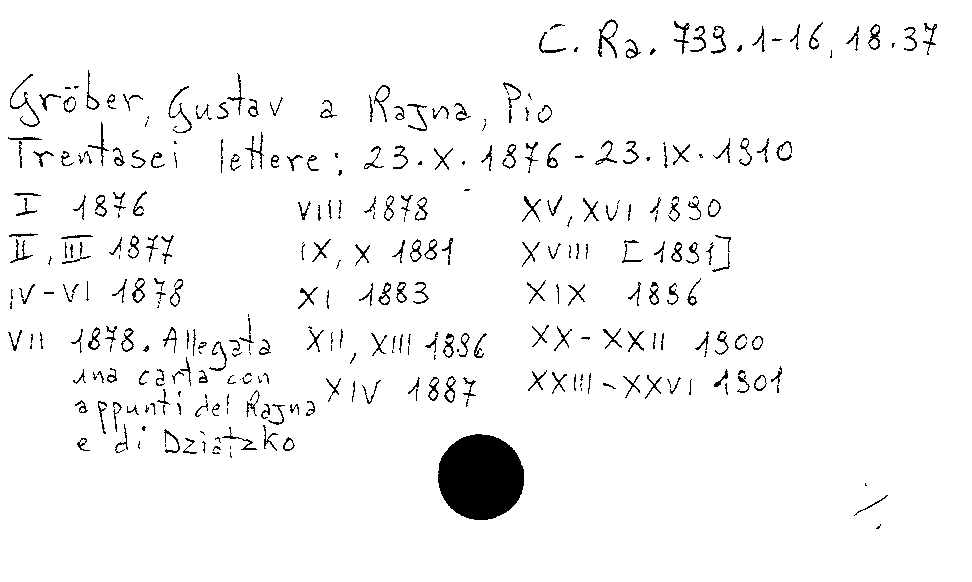 C. Ra. 739.1-16, 18.37
Gröber, Gustav a Rajna, Pio
Trentasei lettere: 23.X.1876-23.IX.1910
I 1876
II, III 1877
IV-VI 1878
VII 1878. Allegata
una carta con
appunti del Rajna
e di Dziatzko
VIII 1878
IX, X 1881
XI 1883
XII, XIII 1896
XIV 1887
XV, XVI 1890
XVIII [1891]
XIX 1896
XX-XXII 1900
XXIII-XXVI 1901
./.